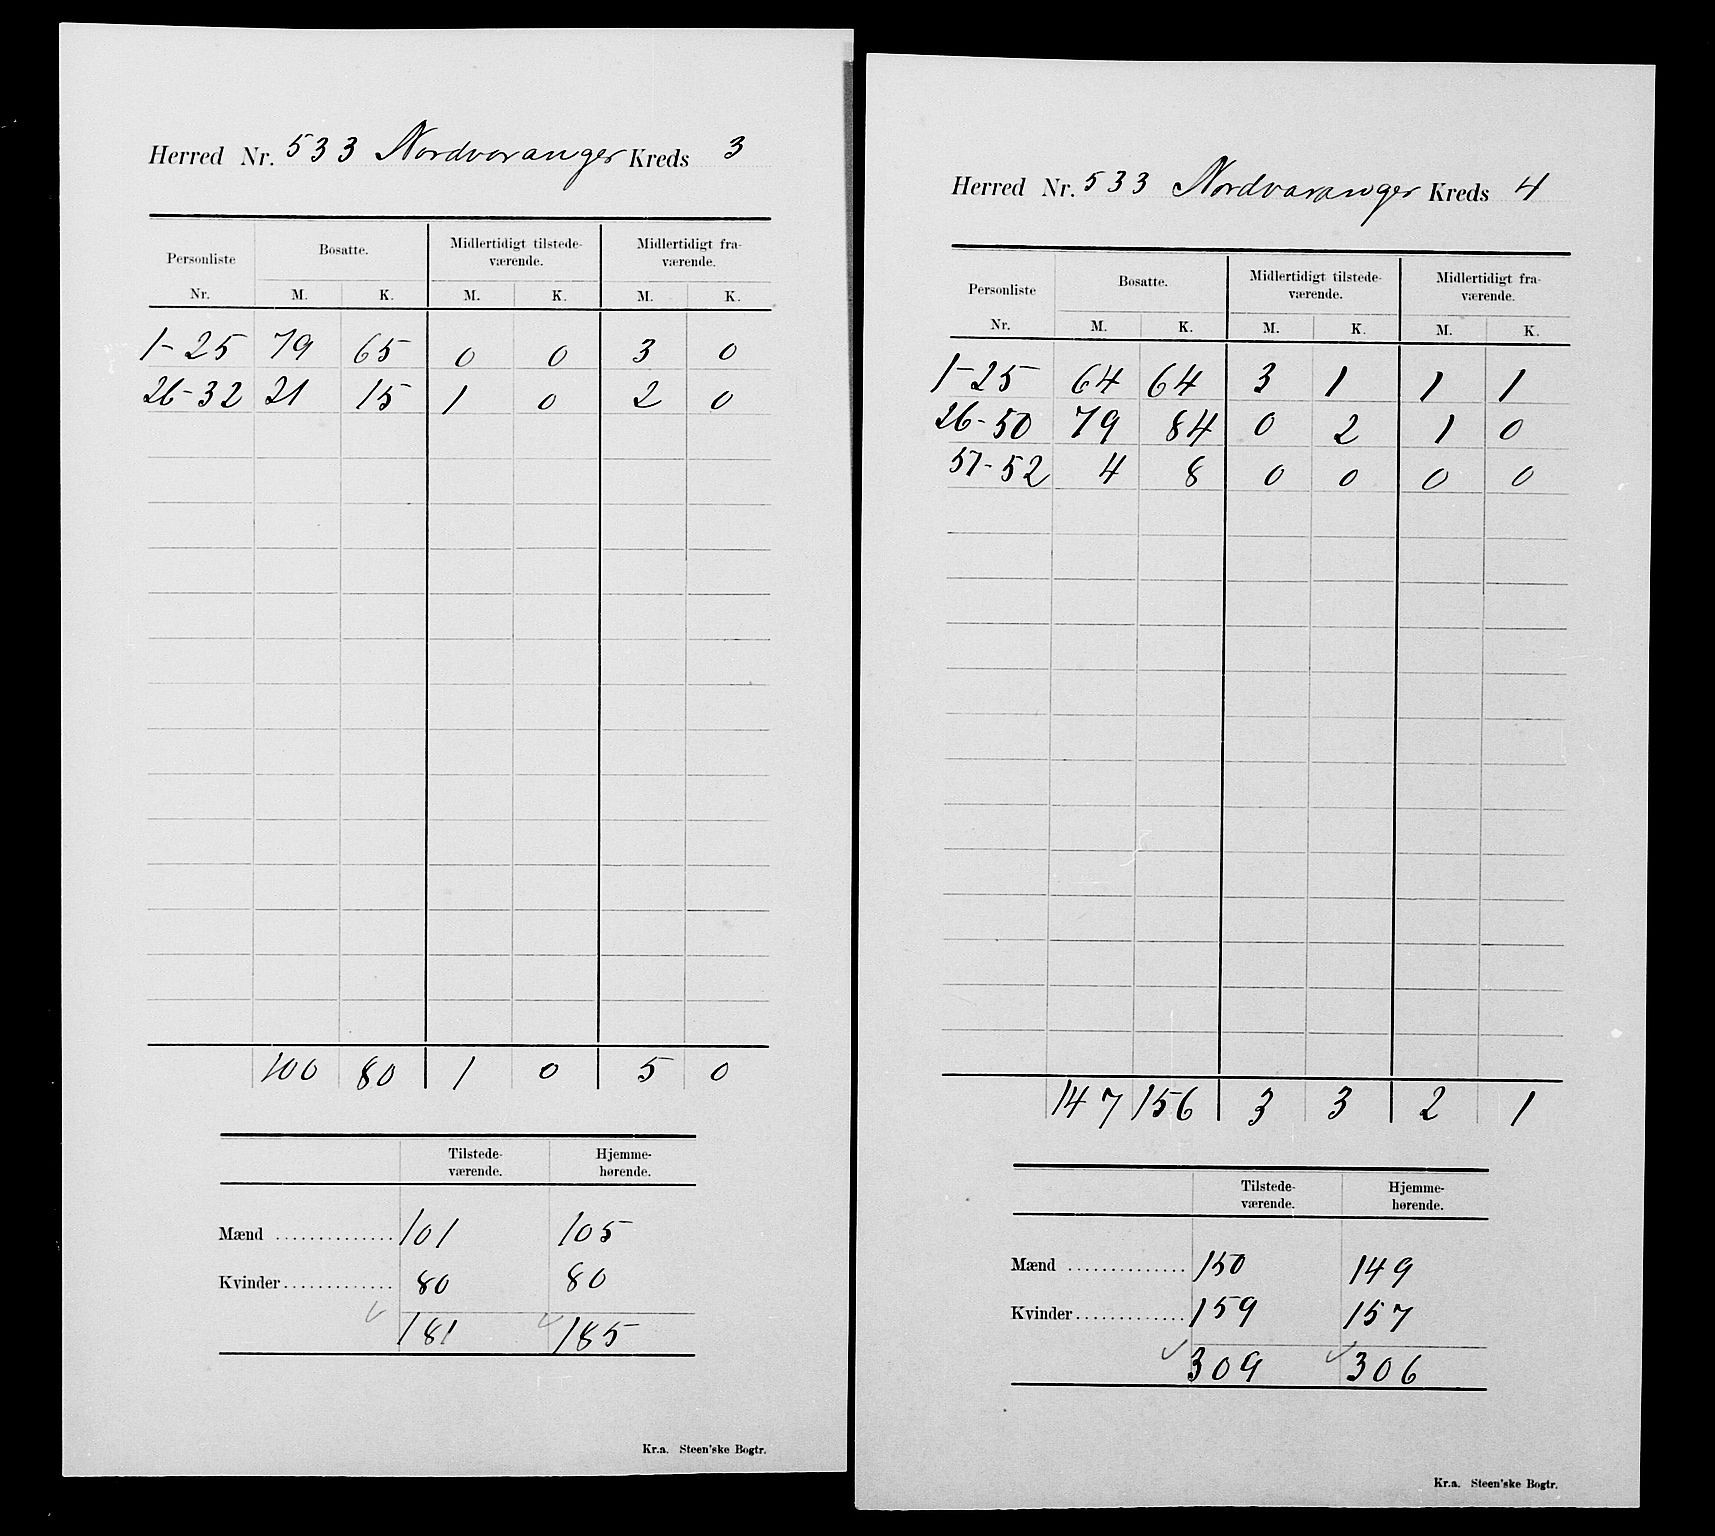 Herred Nr. 533 Nordvaranger Kreds 3
Personliste Bosatte. Midlertidigt tilstede-værende. Midlertidigt fra-værende.
Nr. M. K. M. K. M. K.
1-25 79 65 0 0 3 0
26-32 21 15 1 0 2 0
100 80 1 0 5 0
Tilstede-værende. Hjemme-hørende.
Mænd .............. 101 105
Kvinder ............. 80 80
181 185
Kr.a. Steen'ske Bogtr.
Herred Nr. 533 Nordvaranger Kreds 4
Personliste Bosatte. Midlertidigt tilstede-værende. Midlertidigt fra-værende.
Nr. M. K. M. K. M. K.
1-25 64 64 3 1 1 1
26-50 79 84 0 2 1 0
51-52 4 8 0 0 0 0
147 156 3 3 2 1
Tilstede-værende. Hjemme-hørende.
Mænd .............. 150 149
Kvinder ............. 159 157
309 306
Kr.a. Steen'ske Bogtr.